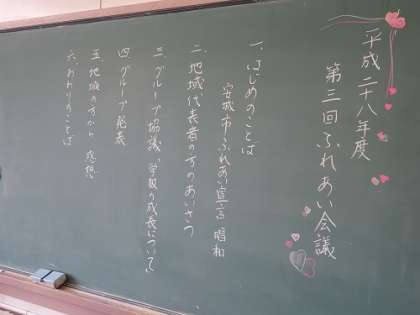 平成二十八年度
第三回ふれあい会議
一、はじめのことば
安城市ふれあい宣言 唱和
二、地域代表者の方のあいさつ
三、グループ協議「学級の成長について」
四、グループ発表
五、地域の方から 感想
六、おわりのことば